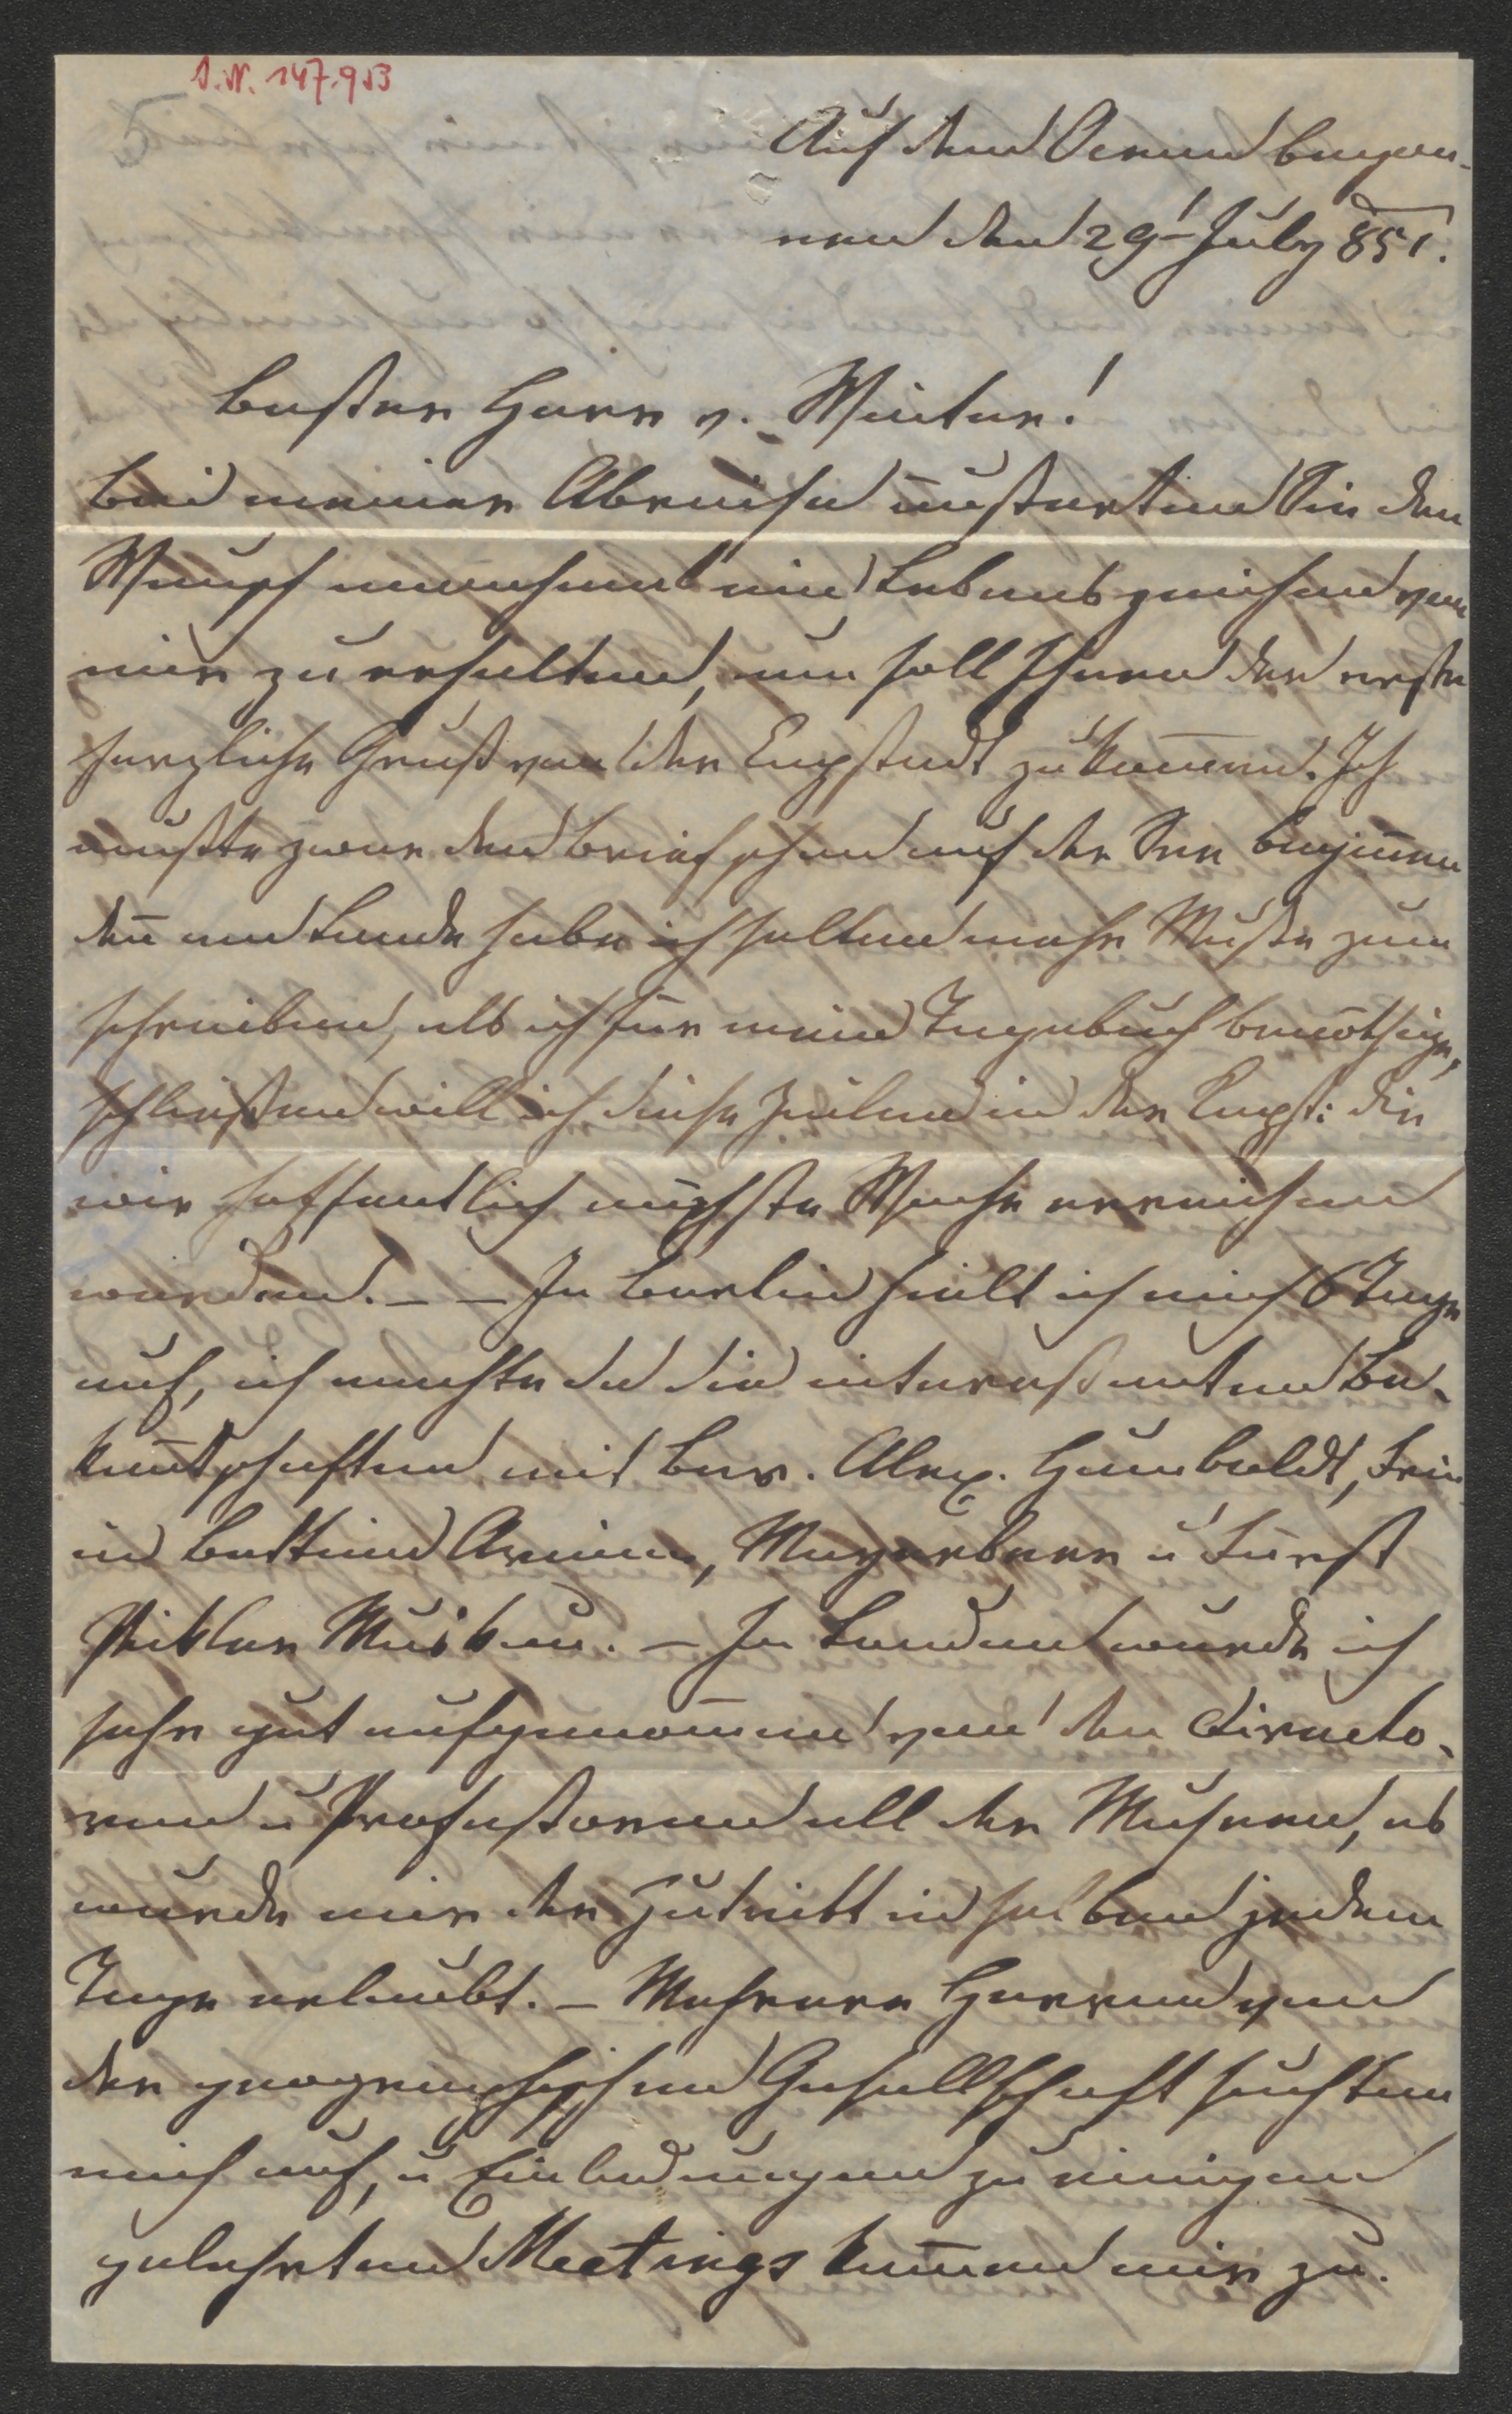 I.N. 147.953
Auf dem Ocean begon-
nen den 29t July 851.
Bester Herr v. Winter!
Bei meiner Abreise äußerten Sie den
Wunsch manchmal ein Lebenszeichen von
mir zu erhalten, nun soll Ihnen der erste
herzliche Gruß von der Capstadt zukom̄en. Ich
mußte zwar den Brief schon auf der See begin̄en
den̄ am Lande habe ich selten mehr Muße zum
schreiben, als ich für mein Tagebuch benöthige,
schließen will ich diese Zeilen in der Capst: die
wir hoffentlich nächste Woche erreichen
werden. – – In Berlin hielt ich mich 6 Tage
auf, ich machte da die interessanten Be-
kan̄tschaften mit Bar. Alex. Humboldt, Frei
in Bettina Arnim, Mayerbeer u Fürst
Pükler Muskau. – In London wurde ich
sehr gut aufgenom̄en von den Directo-
ren u Professoren all der Museen, es
wurde mir der Zutritt in selben jeden
Tage erlaubt. – Mehrere Herren von
der geographischen Gesellschaft suchten
mich auf, u Einladungen zu einigen
gelehrten Meetings kamen mir zu.